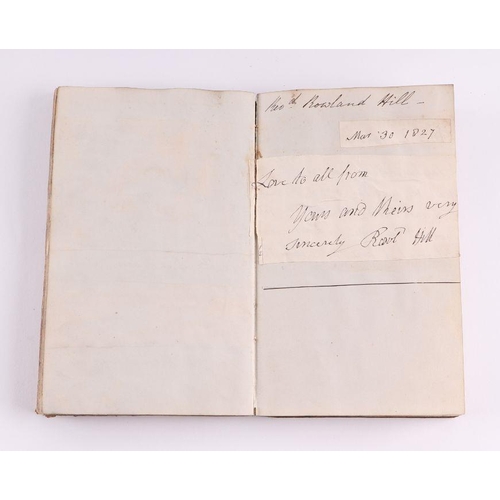 Revd Rowland Hill —
Mar 30 1827
Love to all from
Yours and theirs very
sincerely Rowd Hill